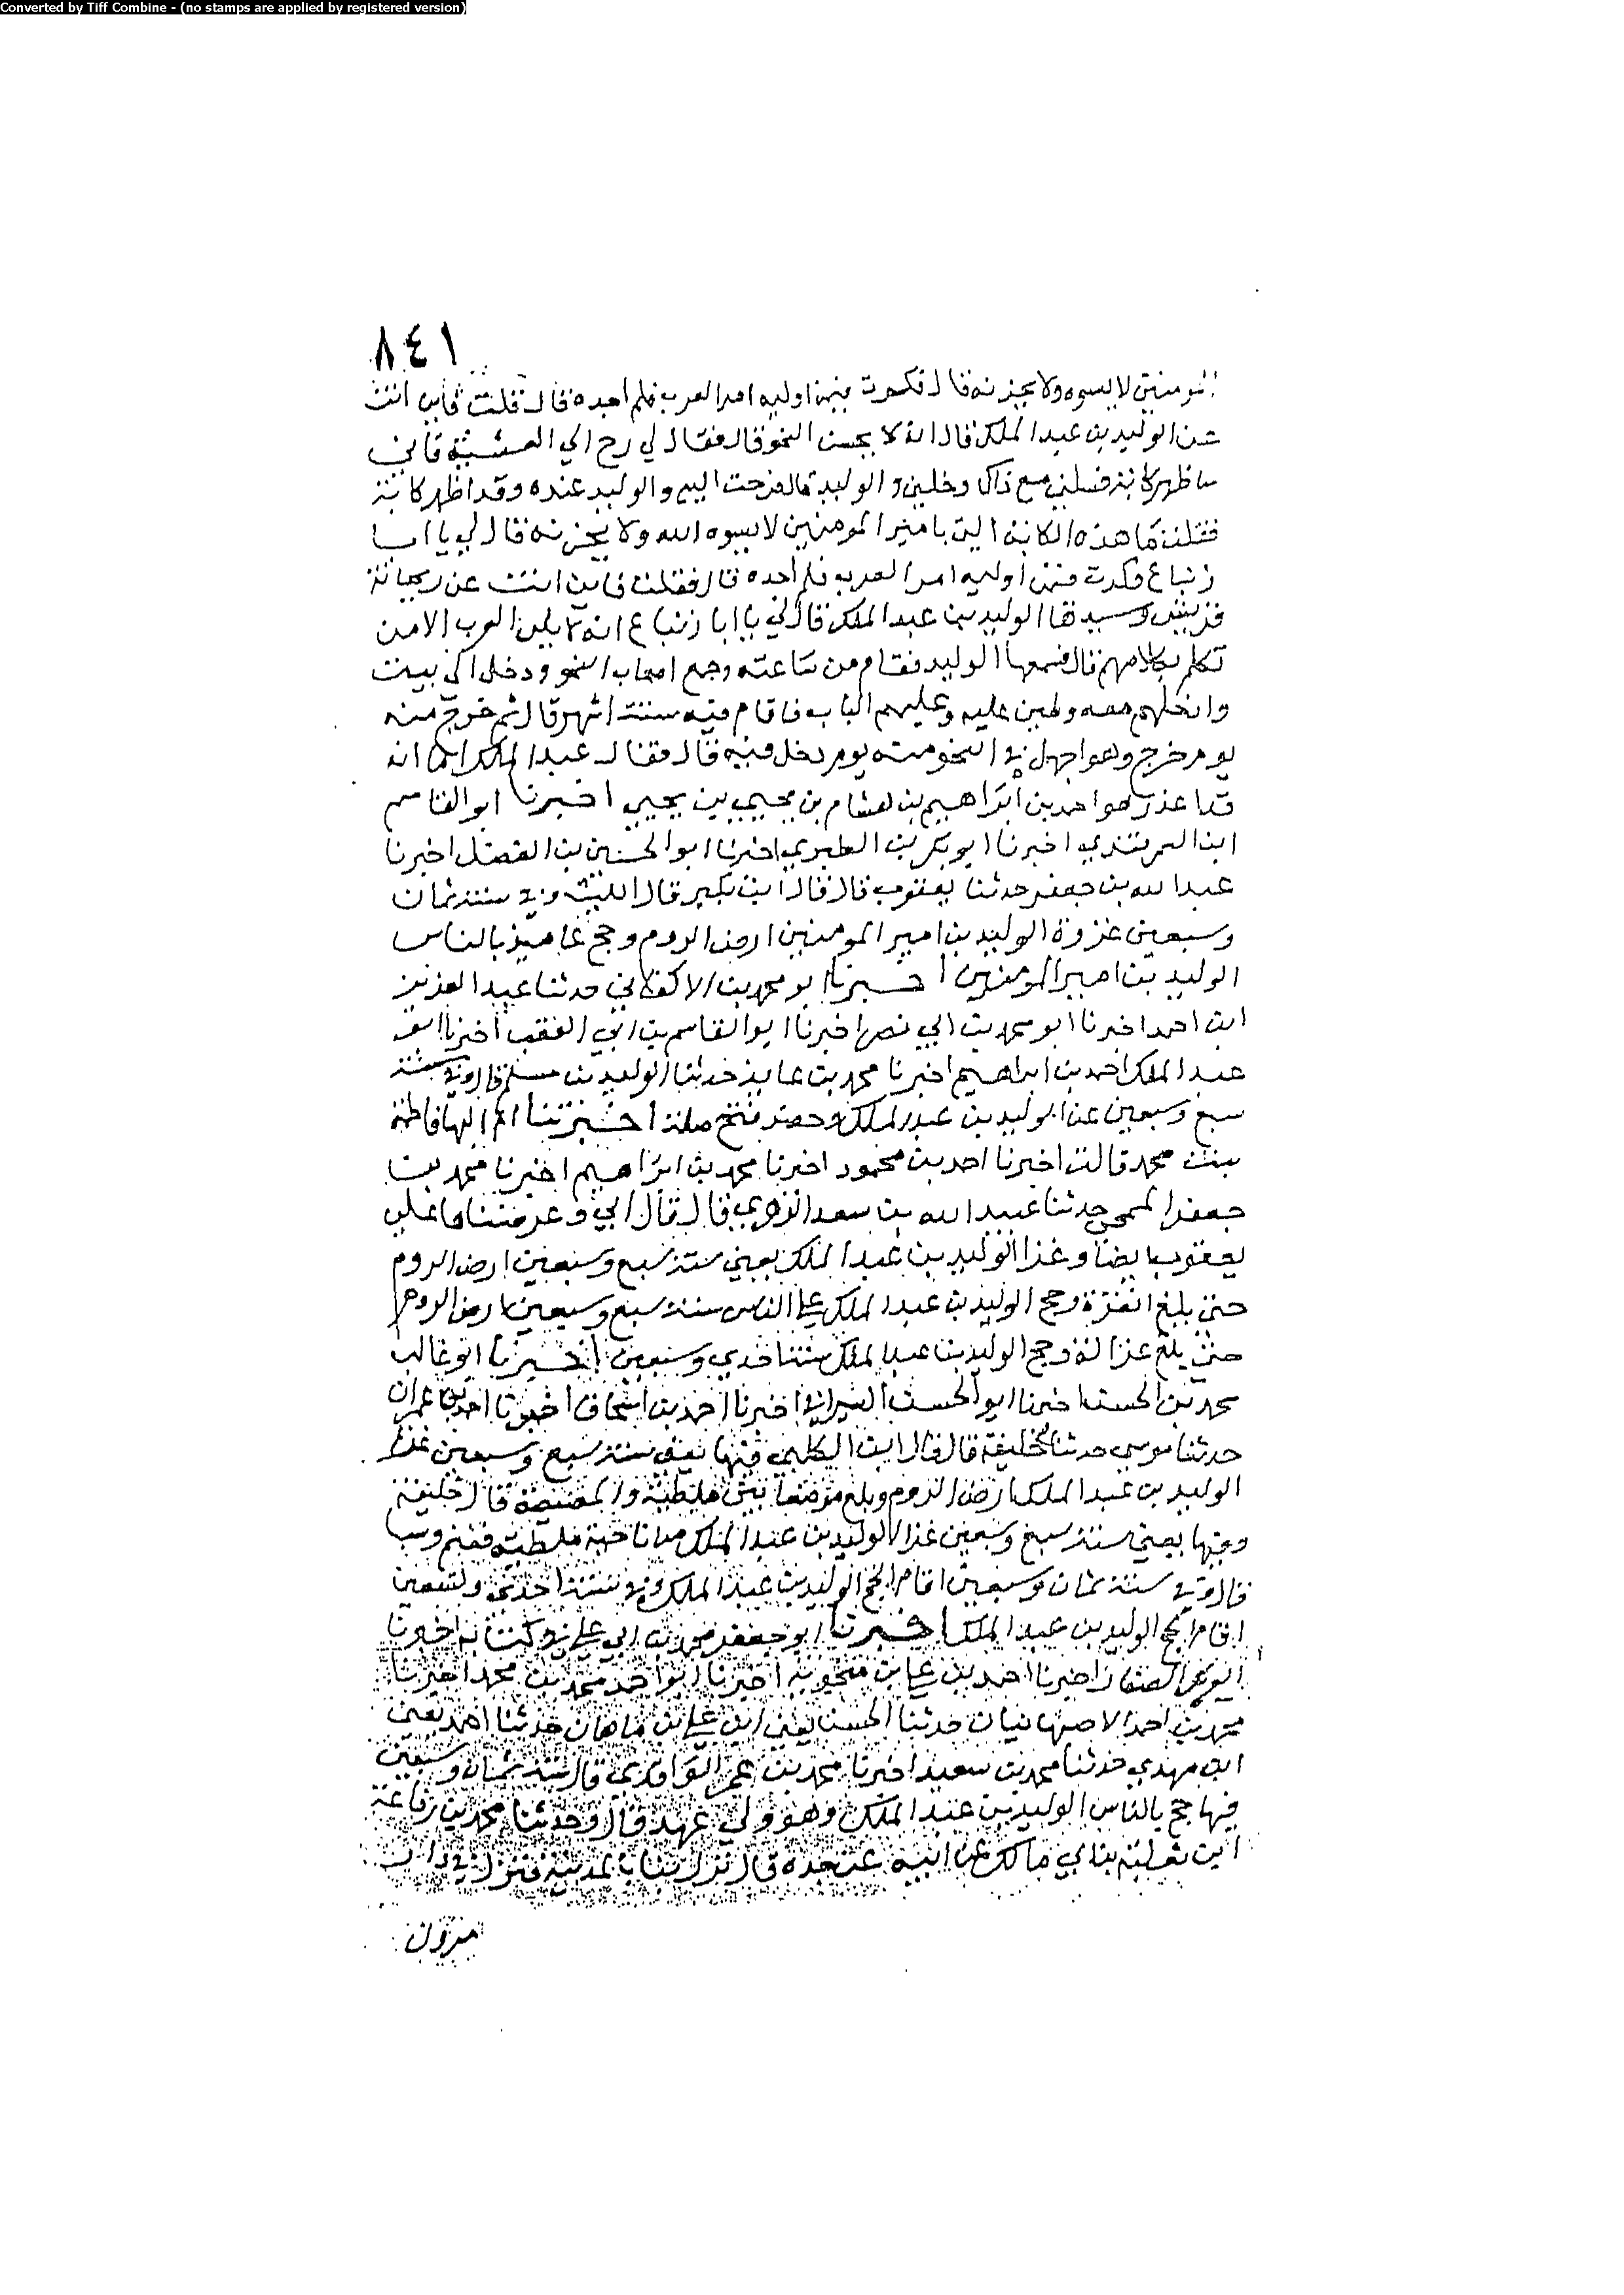 Converted by Tiff Combine - (no stamps are applied by registered version)
٨٤١
المومنين لا يسوه ولا يحزنه قال فكرت فيمن اوليه امر العرب فلم اجده قال فقلت فاين انت
عن الوليد بن عبد الملك قال انه لا يحسن النحو قال فقال لي رح الي العشية فاني
ساظهر كابة فسلني مع ذاك وخلني والوليد قال فرحت اليه والوليد عنده وقد اظهر كابة
فقلت ما هذه الكابة التي يا امير المومنين لا يسوه الله ولا يحزنه قال لي يا ابا
زنباع فكرت فيمن اوليه امر العرب فلم اجده قال فقلت فاين انت عن ريحانة
قريش وسيدها الوليد بن عبد الملك قال لي يا ابا زنباع انه لا يلي العرب الا من
تكلم بكلامهم قال فسمعها الوليد فقام من ساعته وجمع اصحاب النحو ودخل الى بيت
وادخلهم معه وطين عليه وعليهم الباب فاقام فيه ستة اشهر قال ثم خرج منه
يوم خرج وهو اجهل في النحو منه يوم دخل فيه قال فقال عبد الملك اما انه
قد اعذر هو احمد بن ابراهيم بن هشام بن يحيى بن يحيى اخبرنا ابو القاسم
ابن السمرقندي اخبرنا ابو بكر بن الطبري اخبرنا ابو الحسين بن الفضل اخبرنا
عبد الله بن جعفر حدثنا يعقوب قال قال ابن بكير قال الليث وفي سنة ثمان
وسبعين غزوة الوليد بن امير المومنين ارض الروم وحج عاميذ بالناس
الوليد بن امير المومنين اخبرنا ابو محمد بن الاكفاني حدثنا عبد العزيز
ابن احمد اخبرنا ابو محمد بن ابي نصر اخبرنا ابو القاسم بن ابي العقب اخبرنا ابو
عبد الملك احمد بن ابراهيم اخبرنا محمد بن عايذ حدثنا الوليد بن مسلم قال وفي سنة
سبع وسبعين الوليد بن عبد الملك فتح اخبرتنا ام البها فاطمة
بنت محمد قالت اخبرنا احمد بن محمود اخبرنا محمد بن ابراهيم اخبرنا محمد بن
جعفر حدثنا عبيد الله بن سعد الزهري قال قال ابي وعرضتها على
يعقوب ايضا وغزا الوليد بن عبد الملك يعني سنة سبع وسبعين ارض الروم
حتى بلغ انقرة وحج الوليد بن عبد الملك على الناس سنة سبع وسبعين ارض الروم
حتى بلغ غزالة وحج الوليد بن عبد الملك سنة احدي وسبعين اخبرنا ابو غالب
محمد بن الحسن اخبرنا ابو الحسن السيرافي اخبرنا احمد بن اسحاق اخبرنا احمد بن عمران
حدثنا موسى حدثنا خليفة قال قال ابن الكلبي فيها يعني سنة سبع وسبعين غزا
الوليد بن عبد الملك ارض الروم وبلغ موضعا بين ملطية والمصيصة قال خليفة
وفيها يعني سنة سبع وسبعين غزا الوليد بن عبد الملك من ناحية ملطية فغنم وسبا
قال وفي سنة ثمان وسبعين اقام الحج الوليد بن عبد الملك وفي سنة احدي وتسعين
اقام الحج الوليد بن عبد الملك اخبرنا ابو جعفر محمد بن ابي علي في كتابه اخبرنا
ابو بكر الصفار اخبرنا احمد بن علي بن منجويه اخبرنا ابو احمد محمد بن محمد اخبرنا
محمد بن احمد الاصبهانيان حدثنا الحسن يعني ابن علي بن ماهان حدثنا احمد يعني
ابن مهدي حدثنا محمد بن سعيد اخبرنا محمد بن عمر الواقدي قال سنة ثمان وسبعين
فيها حج بالناس الوليد بن عبد الملك وهو ولي عهد قال وحدثنا محمد بن رفاعة
ابن ثعلبة بن ابي مالك عن ابيه عن جده قال نزل بنا بالمدينة فنزل في دار
مروان